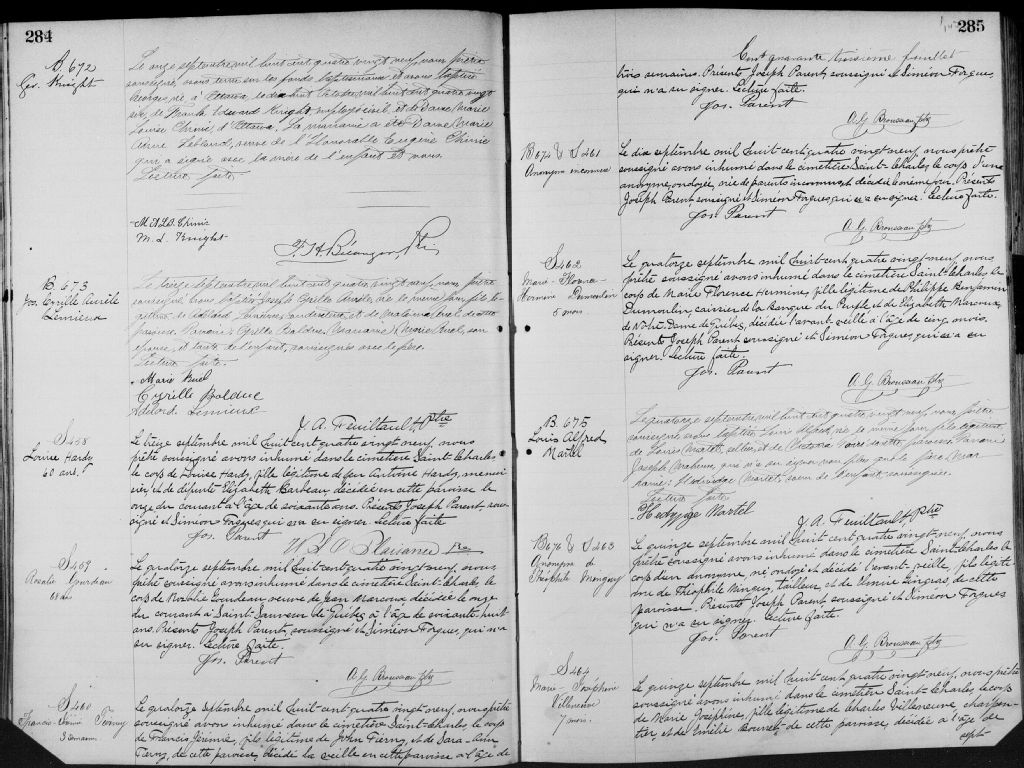 284
B. 672
Geo. Knight
Le onze septembre mil huit cent quatre vingt neuf, nous prêtre
soussigné, avons baptisé
Georges, né à Ottawa, le dix huit octobre mil huit cent quatre vingt
six, de Edouard Knight, employé civil et de Dame Marie
Louise Chinic, d'Ottawa. La marraine a été Dame Marie
Anne Leblond, veuve de l'Honorable Eugène Chinic
qui a signé avec la mère de l'enfant et nous.
Lecture faite.
M. A. LeB. Chinic
M. L. Knight
F. H. Bélanger, Ptre
B. 673
Jos. Cyrille Aurèle
Lemieux
Le treize septembre mil huit cent quatre vingt neuf, nous prêtre
soussigné avons baptisé Joseph Cyrille Aurèle, né le même jour, fils lé-
gitime de Adélard Lemieux, et de
paroisse. Parrain: Cyrille Bolduc, Marraine: Marie Buel, son
épouse, et tante de l'enfant, soussignés avec le père.
Lecture faite.
Marie Buel
Cyrille Bolduc
Adélard Lemieux
J. A. Feuiltault Ptre
S. 458
Louise Hardy
60 ans.
Le treize septembre mil huit cent quatre vingt neuf, nous
prêtre soussigné avons inhumé dans le cimetière Saint-Charles
le corps de Louise Hardy, fille légitime de feu Antoine Hardy, menui-
sier, et de défunte Elizabeth Barbeau, décédée en cette paroisse le
onze du courant à l'âge de soixante ans. Présents Joseph Parent, sous-
signé et Simeon Forgues, qui n'a su signer. Lecture faite
Jos. Parent
Plaisance Ptre
S. 459
Rosalie Gourdeau
68 ans
Le quatorze septembre mil huit cent quatre vingt neuf, nous,
prêtre soussigné avons inhumé dans le cimetière Saint-Charles, le
corps de Rosalie Gourdeau veuve de Jean Marcoux, décédée le onze
du courant à Saint-Sauveur de Québec à l'âge de soixante-huit
ans. Présents Joseph Parent, soussigné et Siméon Forgues, qui n'a
su signer. Lecture faite.
Jos. Parent
A. G. Brousseau Ptre
S. 460
Francis-Jérémie Tierny
3 semaines
Le quatorze septembre mil huit cent quatre vingt neuf, nous prêtre
soussigné avons inhumé dans le cimetière Saint-Charles le corps
de Francis Jérémie, fils légitime de John Tierny, et de Sara-Ann
Tierny, de cette paroisse, décédé la veille en cette paroisse à l'âge de
285
Cent quarante troisième feuillet
trois semaines. Présents Joseph Parent, soussigné et Siméon Forgues,
qui n'a su signer. Lecture faite.
Jos. Parent
A. G. Brousseau Ptre
B 674 & S 461
Anonyme inconnue
Le dix septembre mil huit cent quatre vingt neuf, nous prêtre
soussigné avons inhumé dans le cimetière Saint-Charles, le corps d'une
anonyme, ondoyée, née de parents inconnus et décédée le même jour. Présents
Joseph Parent, soussigné et Simeon Forgues, qui n'a su signer. Lecture faite.
Jos. Parent
A. G. Brousseau Ptre
S. 462
Marie-Florence
Hermine Dumontier
5 mois
Le quatorze septembre mil huit cent quatre vingt neuf, nous
prêtre soussigné avons inhumé dans le cimetière Saint-Charles le
corps de Marie Florence Hermine, fille légitime de Philippe Benjamin
Dumontier, caissier de la Banque du Peuple, et de Elizabeth Marcoux,
de Notre Dame de Québec, décédée l'avant veille à l'âge de cinq mois.
Présents Joseph Parent soussigné et Simeon Forgues, qui n'a su
signer. Lecture faite.
Jos. Parent
A. G. Brousseau Ptre
B. 675
Louis Alfred
Martel
Le quatorze septembre mil huit cent quatre vingt neuf, nous, prêtre
soussigné avons baptisé Louis Alfred, né le même jour, fils légitime
de Louis Martel, sellier, et de de cette paroisse. Parrain:
Joseph qui n'a su signer non plus que le père. Mar-
raine: Hedwidge Martel, soeur de l'enfant soussignée.
Lecture faite
Hedwige Martel
J. A. Feuiltault Ptre
B 676 & S 463
Anonyme de
Théophile Minguy
Le quinze septembre mil huit cent quatre vingt neuf, nous
prêtre soussigné avons inhumé dans le cimetière Saint-Charles le
corps d'un anonyme, né, ondoyé et décédé l'avant-veille, fils légiti-
me de Théophile Minguy, tailleur, et de Elmire Gingras, de cette
paroisse. Présents Joseph Parent soussigné et Siméon Forgues
qui n'a su signer. Lecture faite.
Jos. Parent
A. G. Brousseau Ptre
S. 464
Marie-Joséphine
Villeneuve
7 mois.
Le quinze septembre mil huit cent quatre vingt neuf, nous prêtre
soussigné avons inhumé dans le cimetière Saint-Charles, le corps
de Marie Josephine, fille légitime de Charles Villeneuve, charpen-
tier, et de Emélie de cette paroisse décédée à l'âge de
sept